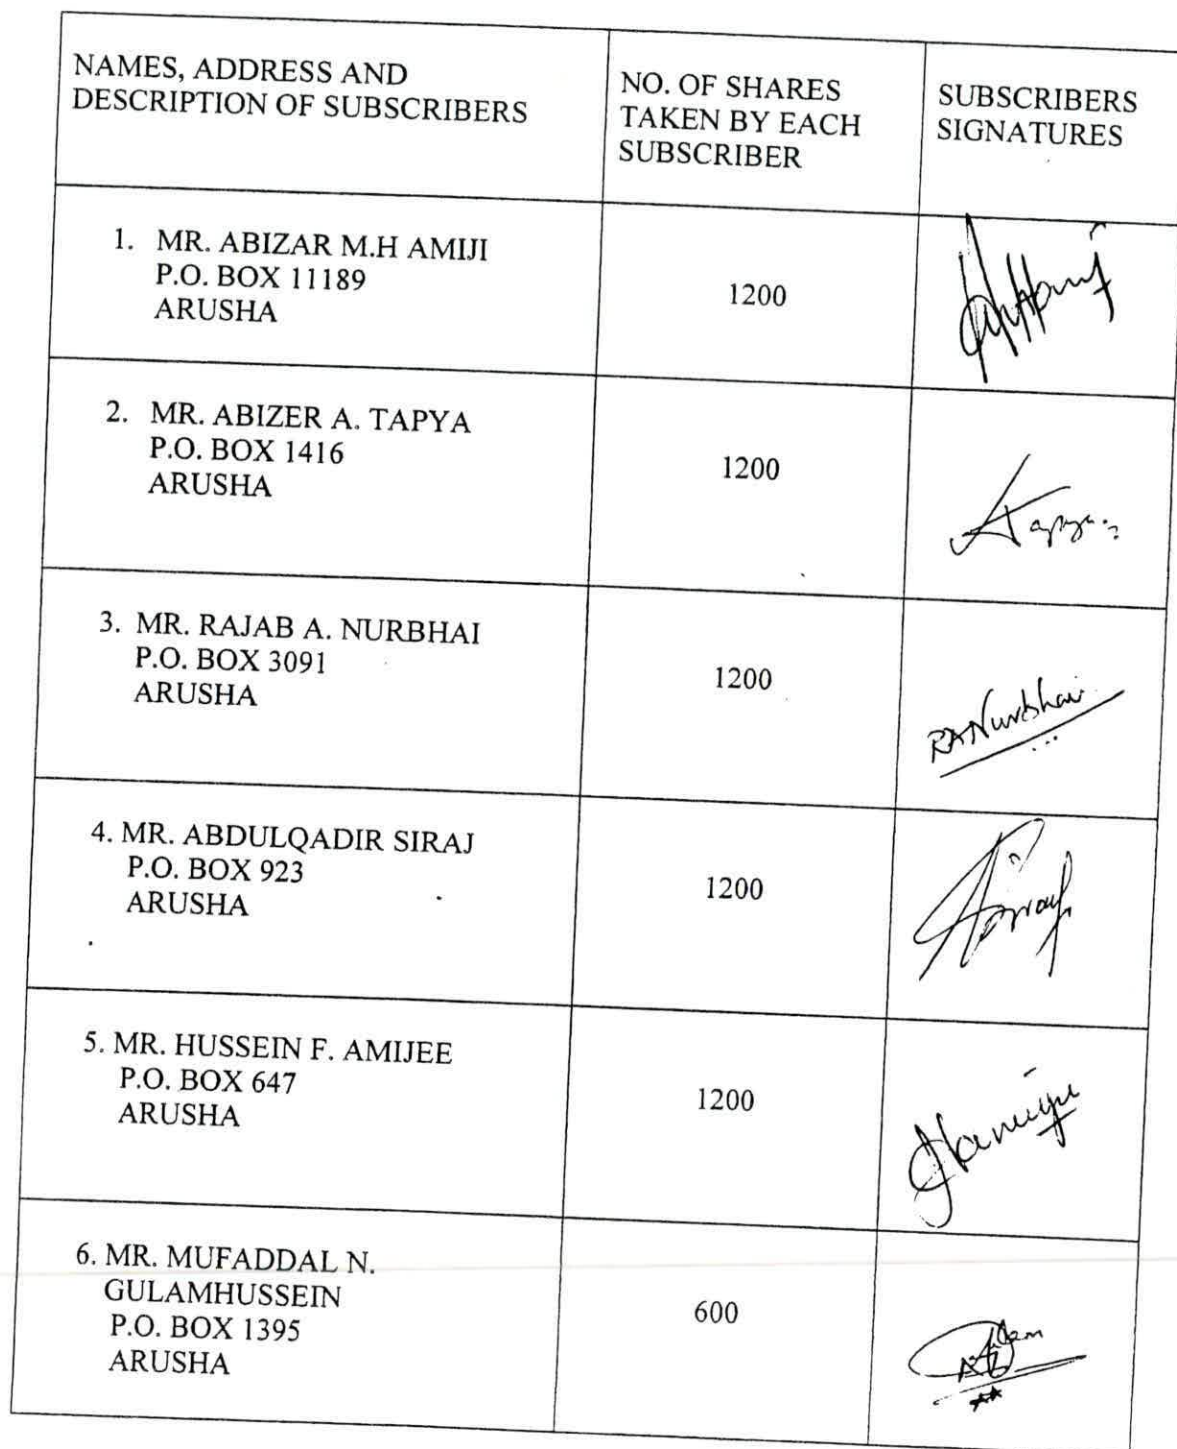 NAMES, ADDRESS AND
DESCRIPTION OF SUBSCRIBERS
NO. OF SHARES
TAKEN BY EACH
SUBSCRIBER
SUBSCRIBERS
SIGNATURES
1. MR. ABIZAR M.H AMIJI
P.O. BOX 11189
ARUSHA
1200
2. MR. ABIZER A. TAPYA
P.O. BOX 1416
ARUSHA
1200
3. MR. RAJAB A. NURBHAI
P.O. BOX 3091
ARUSHA
1200
RANurbhai
4. MR. ABDULQADIR SIRAJ
P.O. BOX 923
ARUSHA
1200
5. MR. HUSSEIN F. AMIJEE
P.O. BOX 647
ARUSHA
1200
6. MR. MUFADDAL N.
GULAMHUSSEIN
P.O. BOX 1395
ARUSHA
600